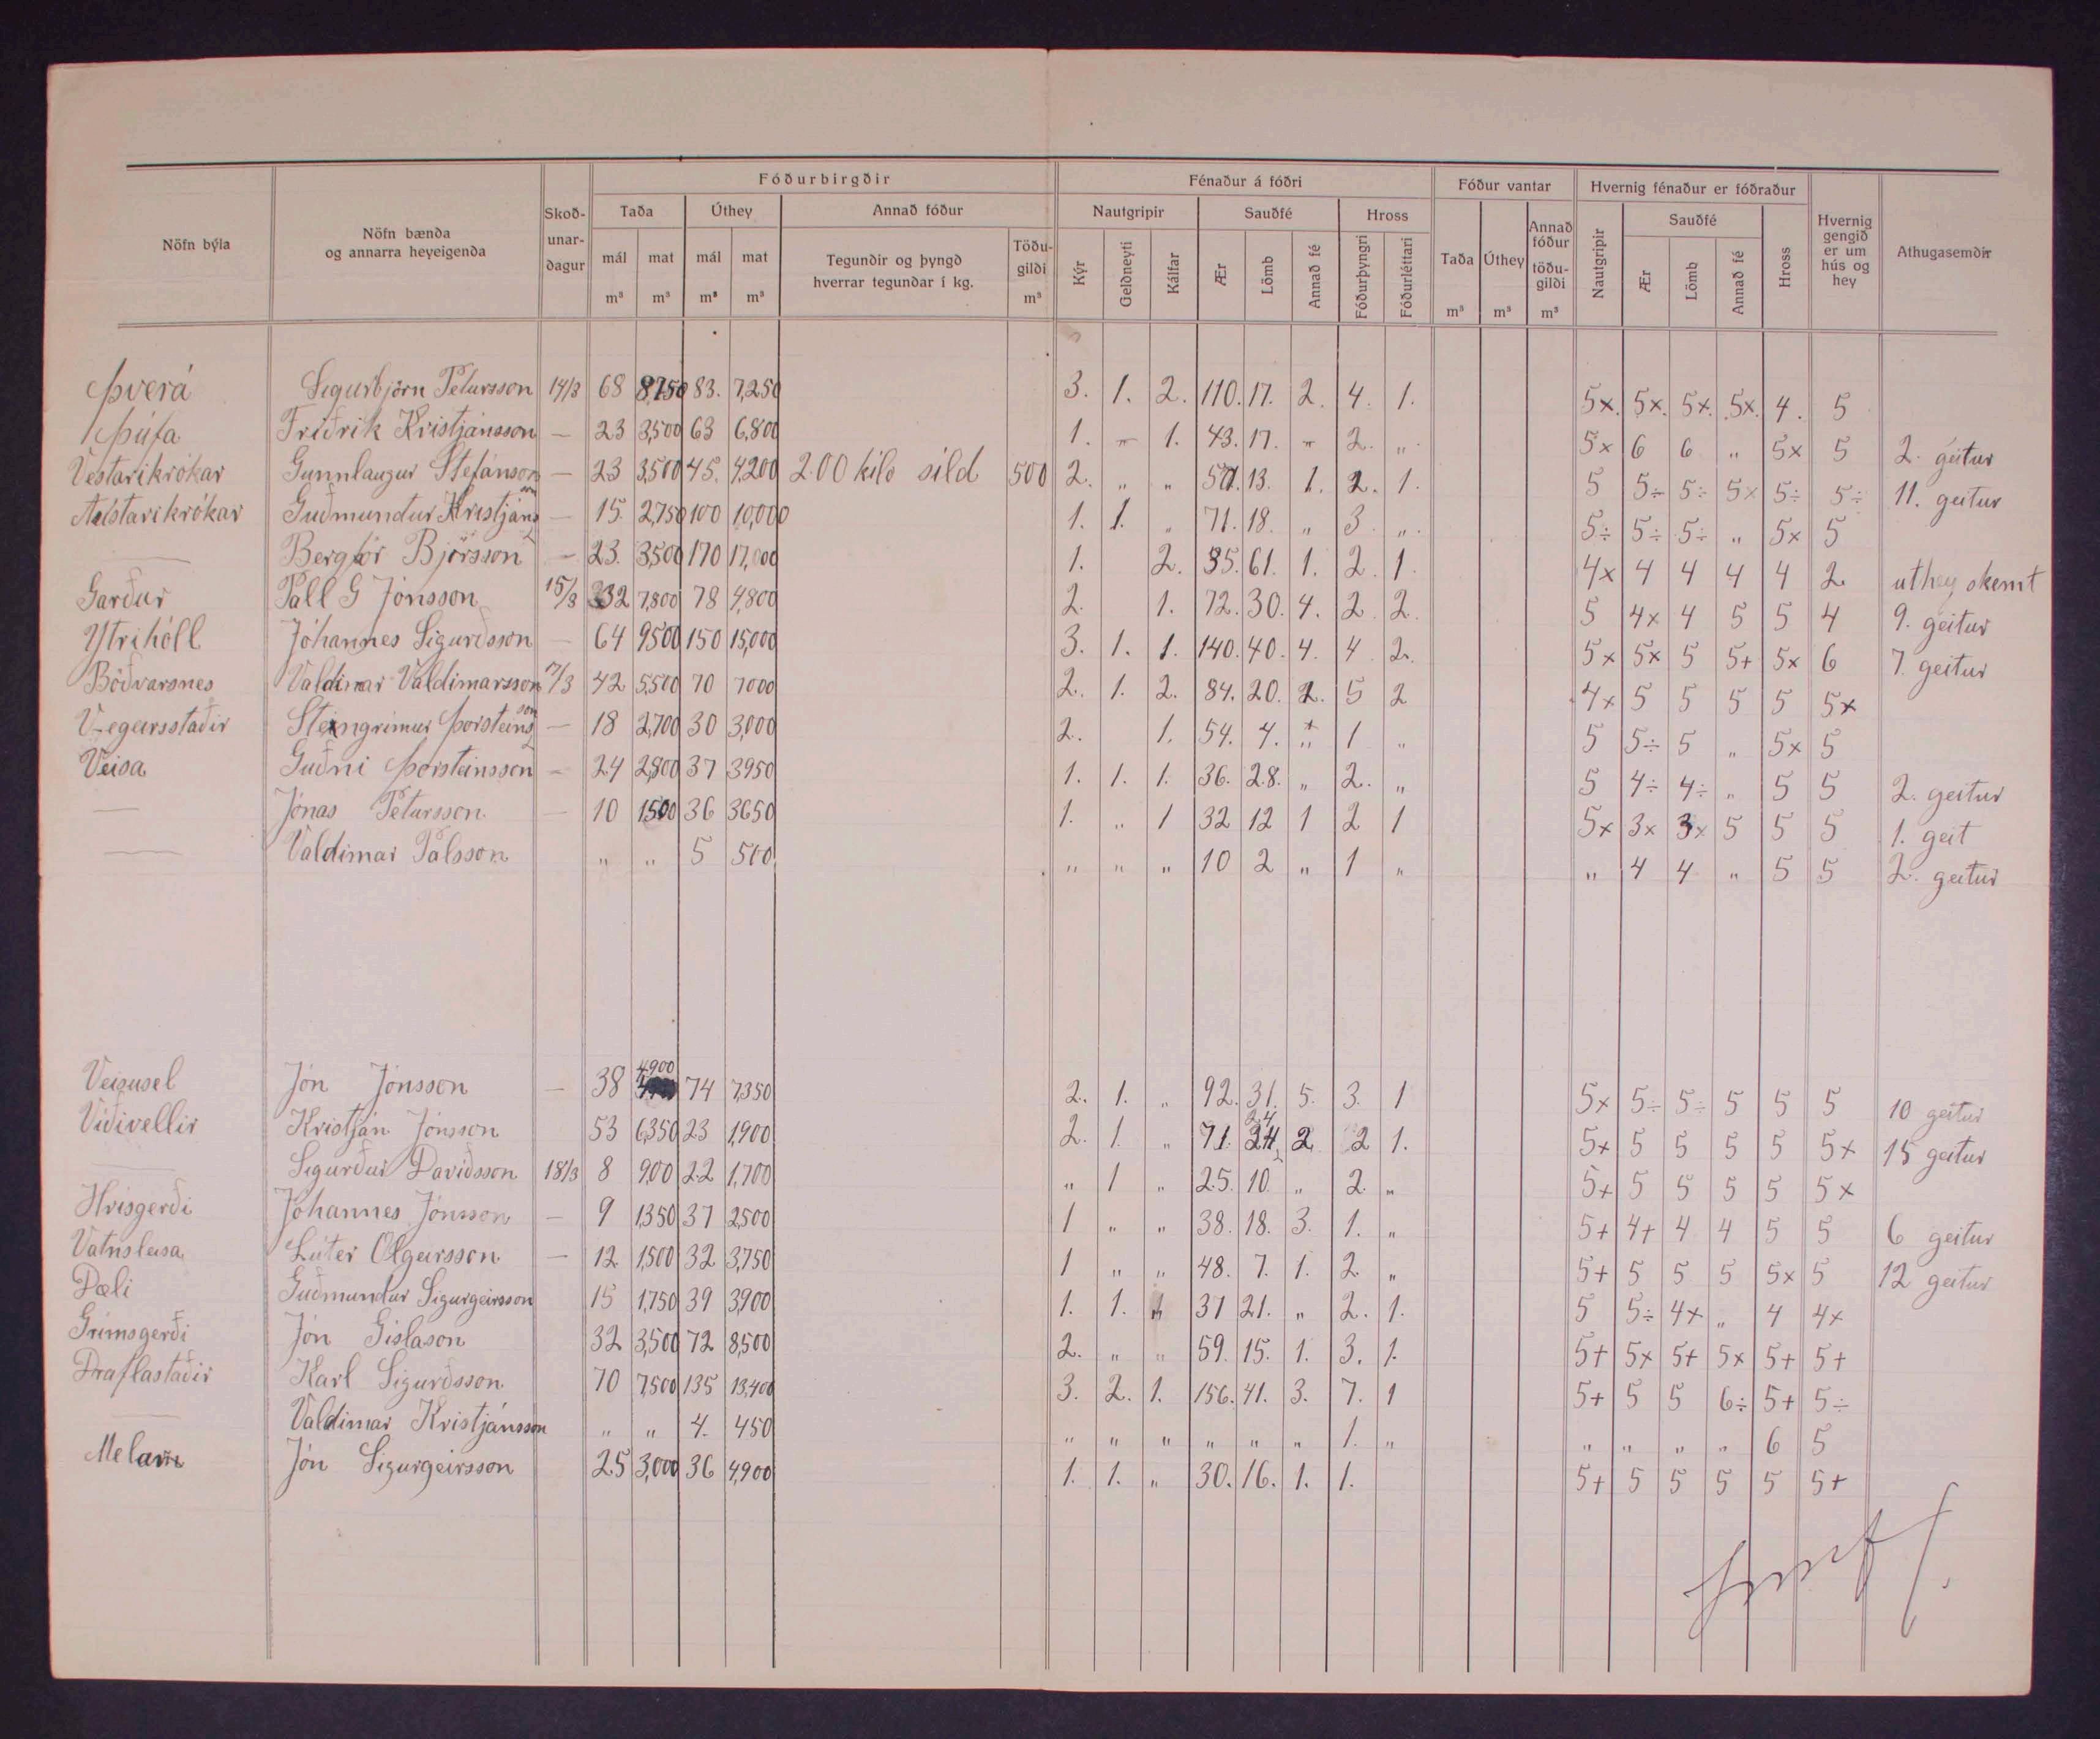 Fóðurbirgðir Fénaður á fóðri Fóður vantar Hvernig fénaður er fóðraður
Nöfn býla Nöfn bænda og annarra heyeigenda Skoð-unar-dagur Taða Úthey Annað fóður Nautgripir Sauðfé Hross Taða Úthey Annað fóður töðu-gildi Nautgripir Sauðfé Hross Hvernig gengið er um hús og hey Athugasemdir
mál mat mál mat Tegundir og þyngd hverrar tegundar í kg. Töðu-gildi Kýr Geldneyti Kálfar Ær Lömb Annað fé Fóðurþyngri Fóðurléttari Ær Lömb Annað fé
m³ m³ m³ m³ m³ m³ m³ m³
Þverá Sigurbjörn Petursson 14/3 68 8,750 83. 7,250 3. 1. 2. 110. 17. 2. 4. 1. 5x. 5x. 5x. 5x. 4. 5
Þúfa Friðrik Kristjánsson — 23 3,500 63 6,800 1. „ 1. 43. 17. „ 2. „ 5x 6 6 „ 5x 5 2. geitur
Vestarikrókar Gunnlaugur Stefánsson — 23 3,500 45. 4,200 2.00 kilo síld 500 2. „ „ 57. 13. 1. 2. 1. 5 5÷ 5÷ 5x 5÷ 5÷ 11. geitur
Austarikrókar Guðmundur Kristjánsson — 15 2,750 100 10,000 1. 1. „ 71. 18. „ 3 „ 5÷ 5÷ 5÷ „ 5x 5
— Bergþór Björsson — 23. 3,500 170 17,000 1. 2. 35. 61. 1. 2. 1 4x 4 4 4 4 2 uthey skemt
Garður Páll G Jónsson 15/3 32 7,800 78 4,800 2. 1. 72. 30. 4. 2 2. 5 4x 4 5 5 4 9. geitur
Ytrihóll Jóhannes Sigurðsson — 64 9500 150 15,000 3. 1. 1. 140. 40. 4. 4 2. 5x 5x 5 5+ 5x 6 7. geitur
Böðvarsnes Valdimar Valdimarsson 17/3 42 5,500 70 7000 2. 1. 2. 84. 20. 2. 5 2 4x 5 5 5 5 5x
Vegeirsstaðir Steingrímur Þorsteinsson — 18 2,700 30 3,000 2. 1. 54. 4. „ 1 „ 5 5÷ 5 „ 5x 5
Veisa Guðni Þorsteinsson — 24 2,800 37 3950 1. 1. 1. 36. 28. „ 2. „ 5 4÷ 4÷ „ 5 5 2. geitur
— Jónas Petursson — 10 1500 36 3650 1. „ 1 32 12 1 2 1 5x 3x 3x 5 5 5 1. geit
— Valdimar Pálsson „ „ 5 500 „ „ „ 10 2 „ 1 „ „ 4 4 „ 5 5 2. geitur
Veisusel Jón Jónsson — 38 4,900 74 7,350 2. 1. „ 92. 31. 5. 3. 1 5x 5÷ 5÷ 5 5 5 10 geitur
Víðivellir Kristján Jónsson 53 6,350 23 1,900 2. 1 „ 71. 24 2 2 1. 5+ 5 5 5 5 5+ 15 geitur
— Sigurður Davíðsson 18/3 8 900 22 1,700 „ 1 „ 25. 10. „ 2. „ 5+ 5 5 5 5 5x
Hrísgerði Jóhannes Jónsson — 9 1,350 37 2,500 1 „ „ 38. 18. 3. 1. „ 5+ 4+ 4 4 5 5 6 geitur
Vatnsleisa Lúter Olgeirsson — 12 1,500 32 3,750 1 „ „ 48. 7. 1. 2. „ 5+ 5 5 5 5x 5 12 geitur
Dæli Guðmundur Sigurgeirsson 15 1,750 39 3,900 1. 1. „ 37 21. „ 2. 1. 5 5÷ 4x „ 4 4x
Grímsgerði Jón Gíslason 32 3,500 72 8,500 2. „ „ 59. 15. 1. 3. 1. 5+ 5x 5+ 5x 5+ 5+
Draflastaðir Karl Sigurðsson 70 7,500 135 13,400 3. 2. 1. 156. 41. 3. 7. 1 5+ 5 5 6÷ 5+ 5÷
— Valdimar Kristjánsson „ „ 4. 450 „ „ „ „ „ „ 1. „ „ „ „ „ 6 5
Melar Jón Sigurgeirsson 25 3,000 36 4,900 1. 1. „ 30. 16. 1. 1. 5+ 5 5 5 5 5+